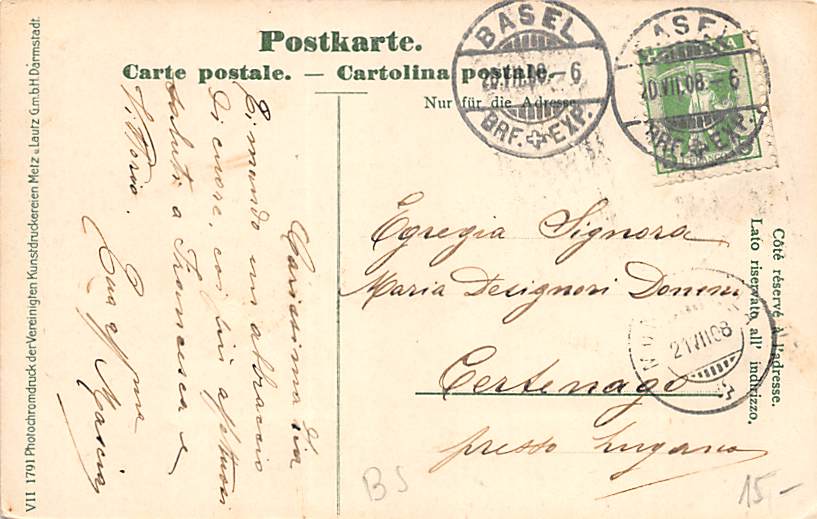 Postkarte.
Carte postale. — Cartolina postale.
Nur für die Adresse
BASEL
20.VII.08.-6
BRF. EXP.
BASEL
20.VII.08.-6
BRF. EXP.
Egregia Signora
Maria Designori Donini
Certenago
presso Lugano
21 VII 08
Côté réservé à l'adresse.
Lato riservato all' indirizzo.
Carissima Zia
Ci mando un abbraccio
di cuore, coi più affettuosi
saluti a Francesca e
Vittorio.
Tua aff.ma
VII 1791 Photochromdruck der Vereinigten Kunstdruckereien Metz & Lautz G.m.b.H. Darmstadt.
BS
15-